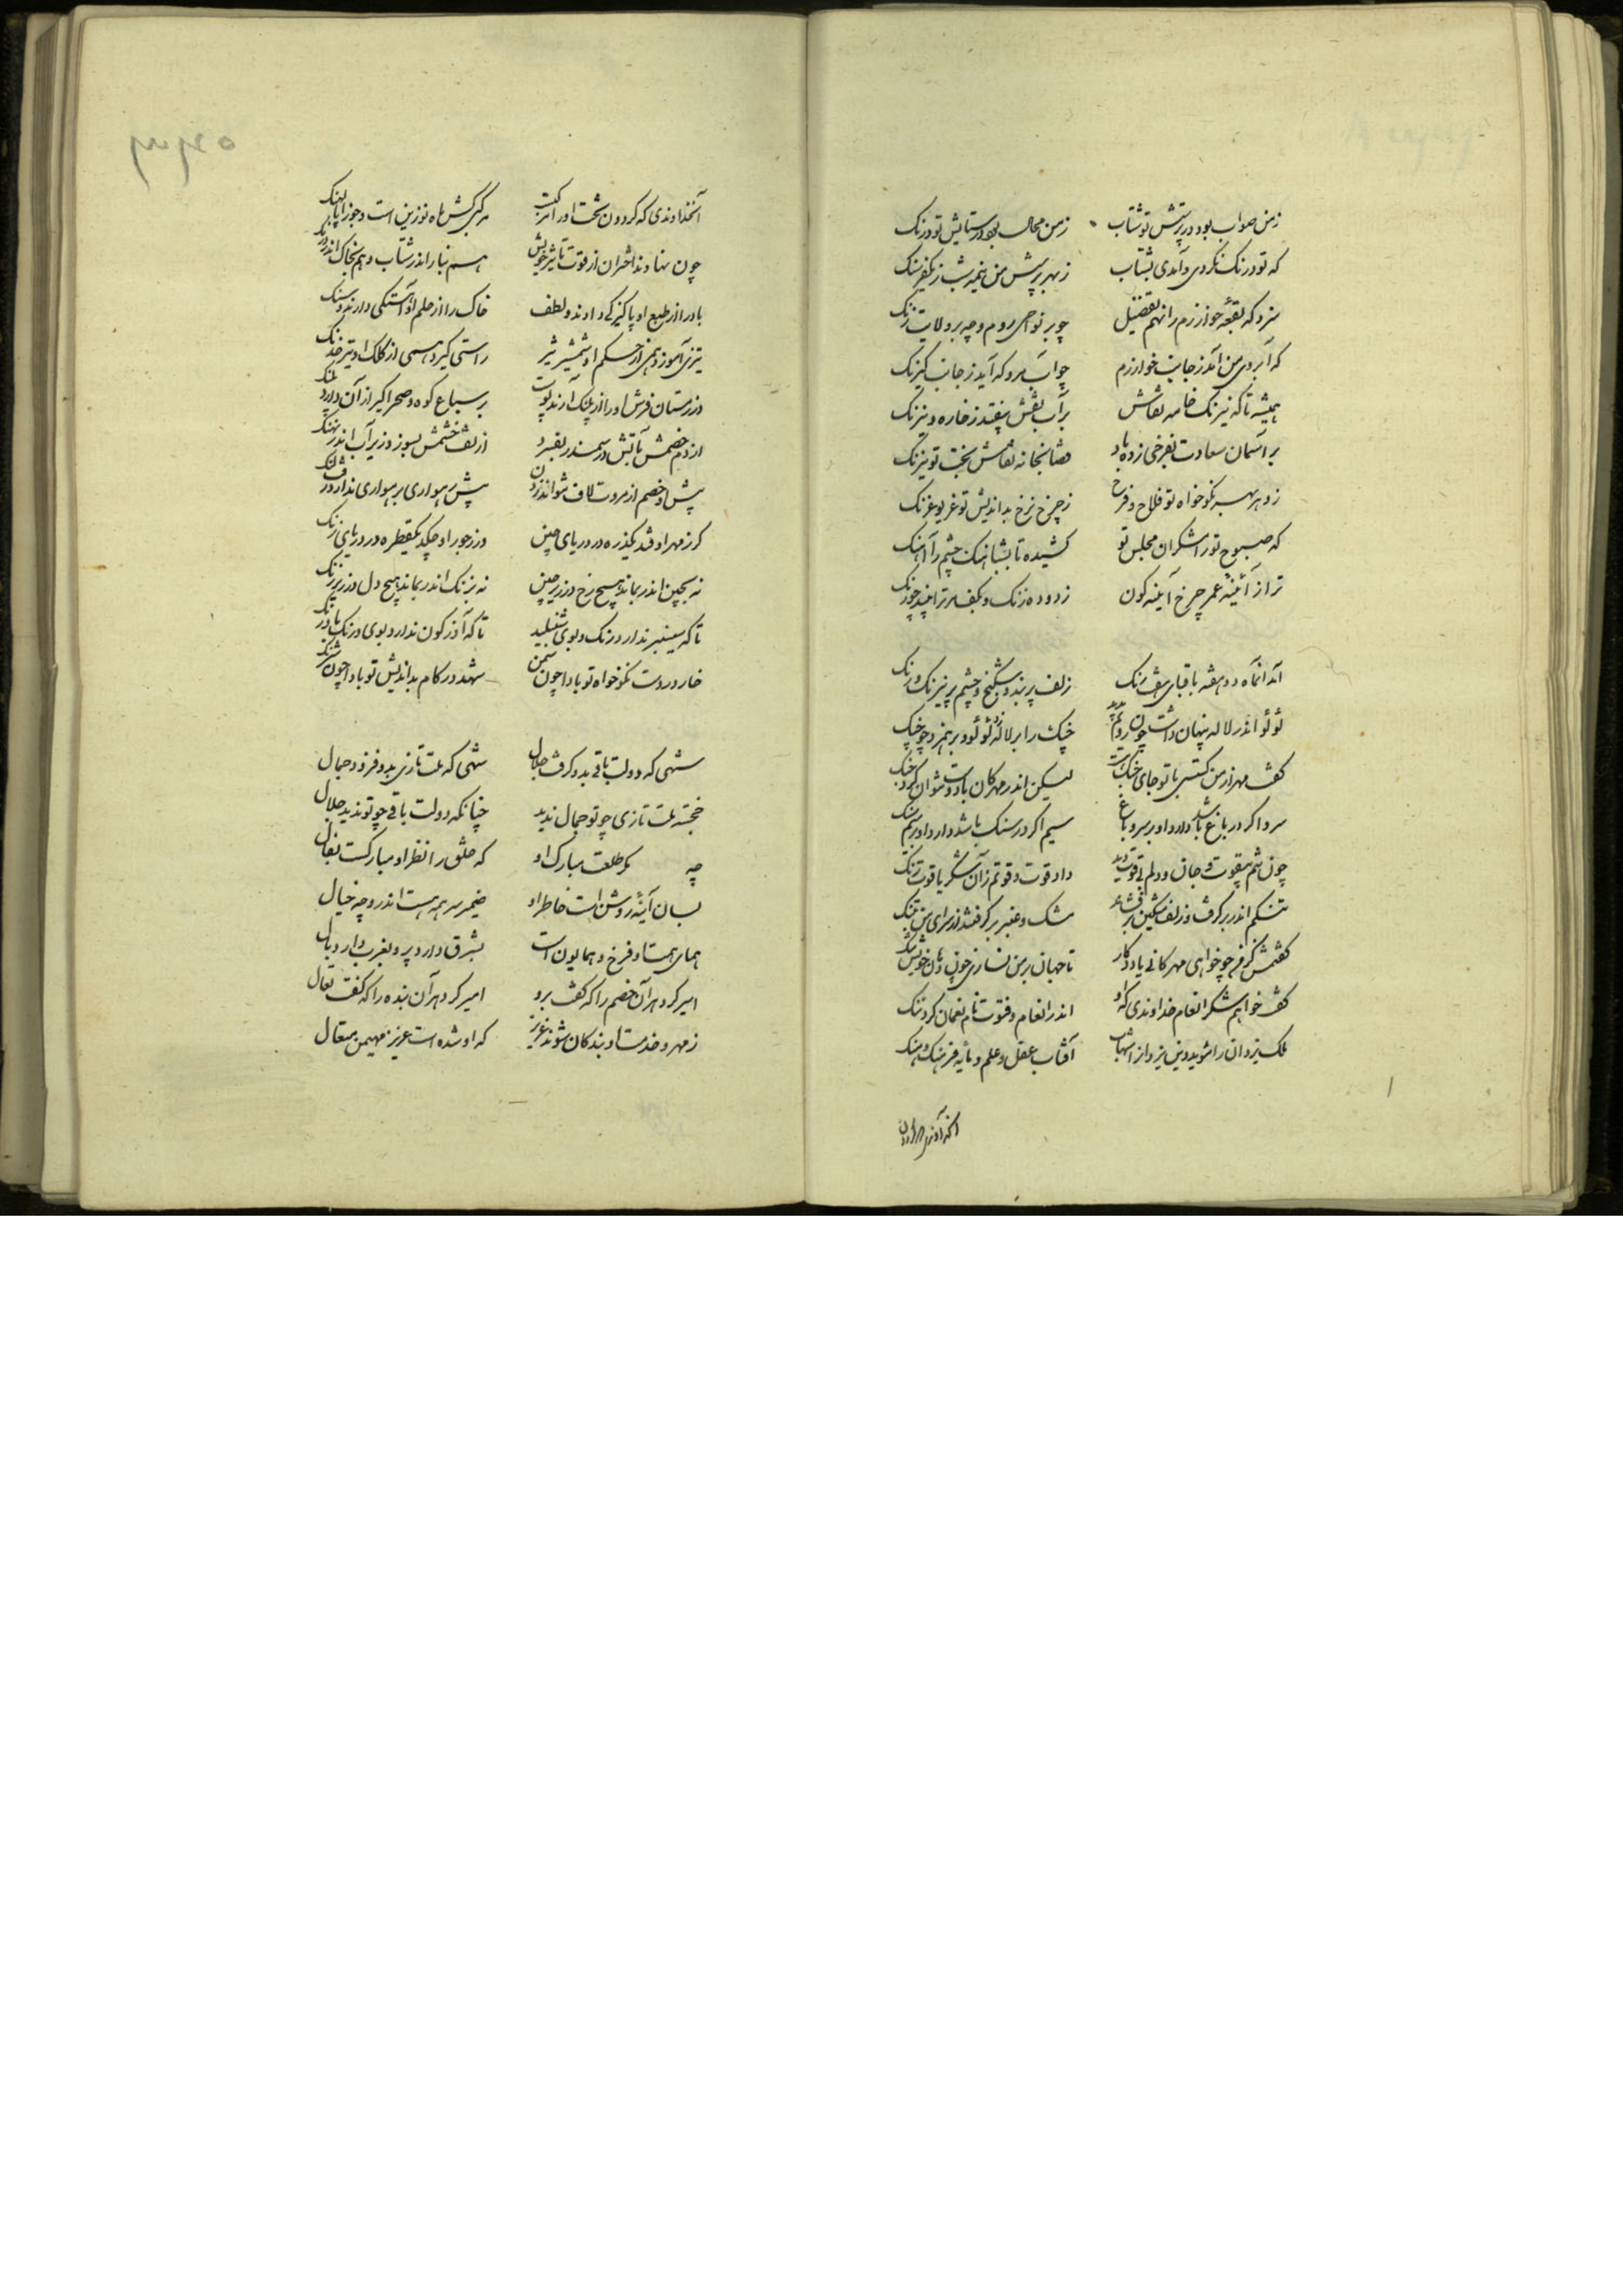 زمن صواب بود در پرستش تو شتاب زمن محال بود در ستایش تو درنک
که تو درنک نکردی و آمدی بشتاب ز بهر پرسش من نیمه شب ز یکفرسنک
سزد که بقعهٔ خوارزم را نهم تفضیل چو بر نواحی روم و چه بر ولایت زنک
که آبروی من آمد ز جانب خوارزم چو آب مرو که آید ز جانب کیرنک
همیشه تا که نیرنک خامه نقاش بر آب نقش نیفتد ز خاره و نیرنک
بر آسمان سعادت بفرخی زده باد قضا نجانه نقاش بخت تو نیرنک
ز دهر بهر نکو خواه تو فلاح و فرح ز چرخ نرخ بداندیش تو غریو غرنک
که صبوح تو رامشکران مجلس تو کشیده تا بشباهنک چشم را آهنک
ترا ز آئینه عمر چرخ آینه کون زدوده زنک و بکف مر ترا نبید چو زنک
آمد آنماه دو هفته با قبای هفت رنک زلف پر بند و شکنج و چشم پر نیرنک و رنک
لؤلؤ اندر لاله پنهان داشت چون رویم بدید چنک را بر لاله و لؤلؤ و بر هم زد چو چنک
کفت مهر از من کسستی با تو جای جنک هست لیکن اندر مهرکان با دوست نتوان کرد جنک
سرو اکر در باغ باشد دارد او بر سرو باغ سیم اکر در سنک باشد دارد او بر سیم سنک
چون شم بیقوت و جان و دلم بی قوت دید داد قوت و قوتم زآن شکر یاقوت رنک
تنکم اندر بر کرفت و زلف مشکین برفشاند مشک و عنبر بر کرفتند از سرای من تنک
کفتمش کز فر چو خواهی مهر کانی یادکار تا جهان بر من نسازی چون دهان خویش تنک
کفت خواهم شکر انعام خداوندی که او اندر انعام و فتوت نام نعمان کرد ننک
ملک یزدان را مؤید دین یزدان را شهاب آفتاب عقل و علم و مایه فرهنک و هنک
آنخداوندی که کردون تخت او را مرکبت مرکبی کش ماه نو زین است و جوزا پالهنک
چون نهادند اختران از قوت تأثیر خویش هم بنار اندر شتاب و هم بخاک اندر درنک
باد را از طبع او پاکیزکی دادند و لطف خاک را از حلم او آهستکی دادند و سنک
تیزی آموزد همی از حکم او شمشیر تیز راستی کیرد همی از کلک او تیر خدنک
در زمستان فرش او را از پلنک آرند پوست بر سباع کوه و صحرا کبر از آن دارد پلنک
از دم خصمش بآتش در سمندر بفسرد از تف خشمش بسوزد زیر آب اندر نهنک
پیش او خصم از مروت لاف نتواند زدن پیش رهواری بر هواری ندارد لنک
کر ز مهر او فتد یکذره در دریای چین ور ز جور او چکد یکقطره در دریای زنک
نه بچین اندر بماند هیچ رخ در زیر چین نه بزنک اندر بماند هیچ دل در زیر زنک
تا که سیسنبر ندارد رنک و بوی شنبلید تا که آذرکون ندارد بوی و رنک بادرنک
خار در دست نکو خواه تو بادا چون سمن شهد در کام بداندیش تو بادا چون شرنک
شهی که دولت باقی بدو کرفت جلال شهی که ملت تازی بدو فزود جمال
خجسته ملت تازی چو تو جمال ندید چنانکه دولت باقی چو تو ندید جلال
چه مکر طلعت مبارک او که خلق را نظر او مبارکست بفال
بسان آینهٔ روشن است خاطر او ضمیر سر همه هست اندر و چه خیال
همای همت او فرخ و همایون است بشرق دارد پر و بغرب دارد بال
امیر کرد هر آن خصم را که کفت برو امیر کرد هر آن بنده را که کفت تعال
ز مهر و خدمت او بندکان شوند عزیز که او شده است عزیز مهیمن متعال